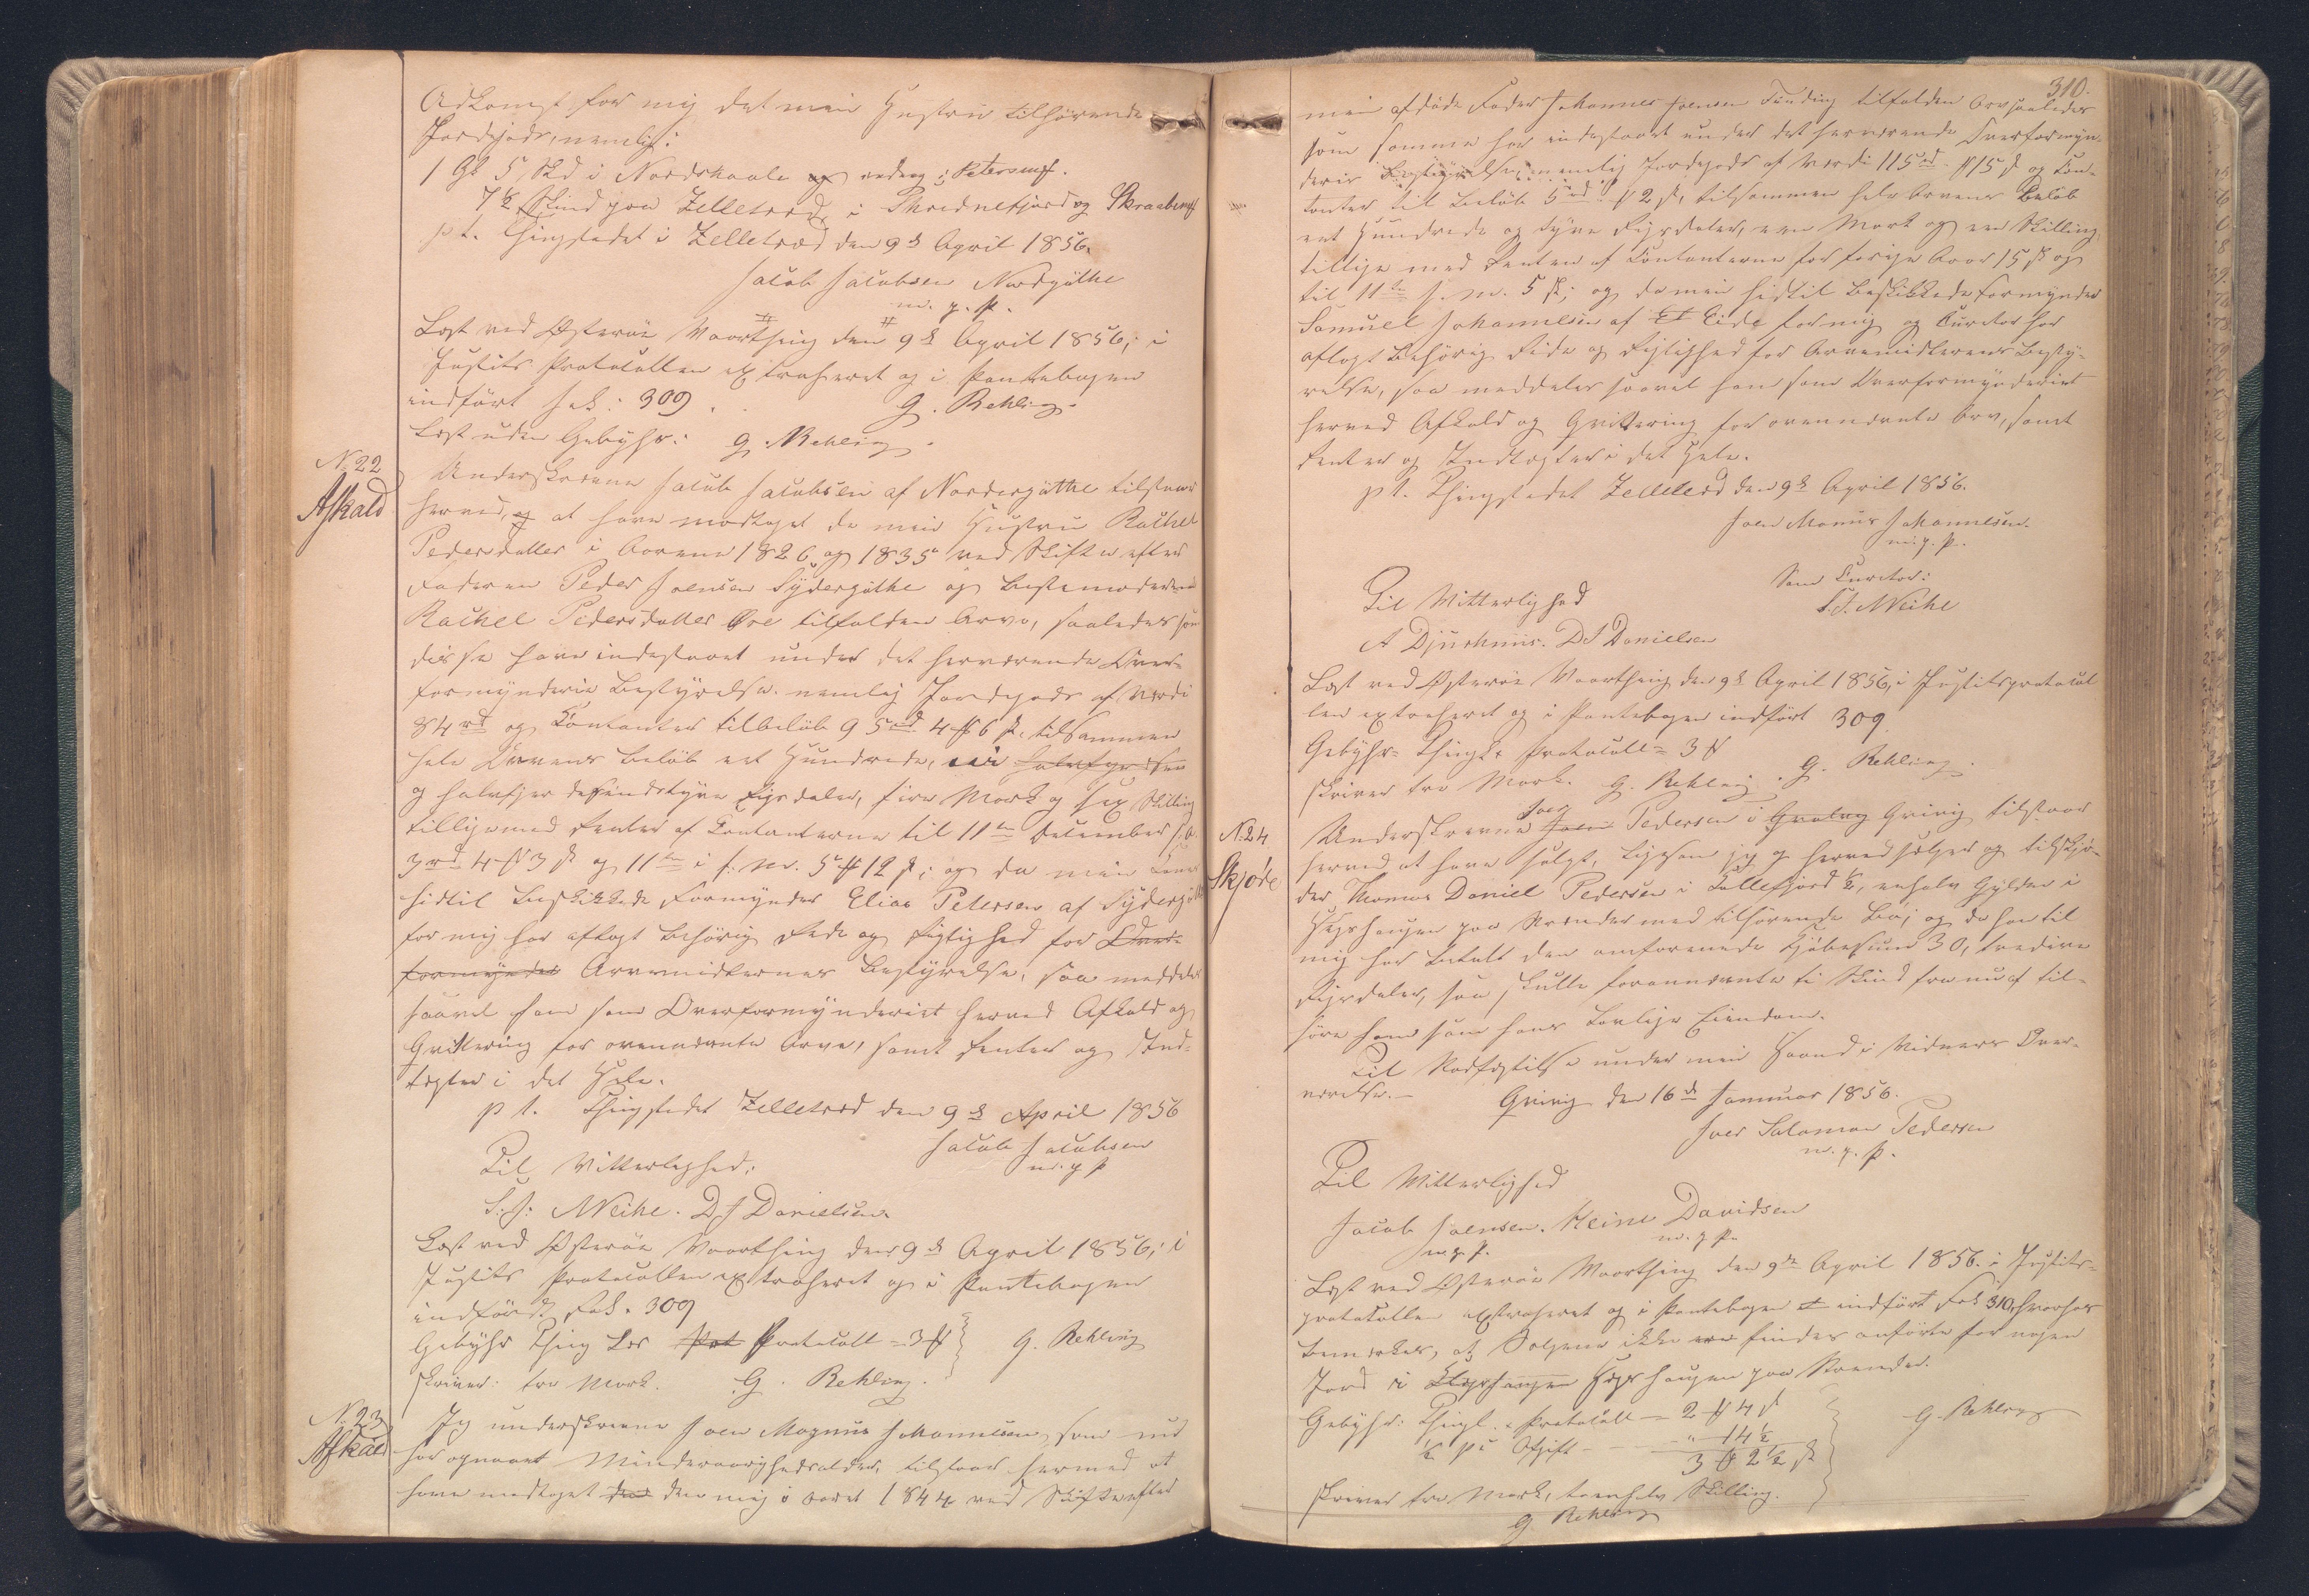 Adkomst for mig det min Hustru tilhørende
Jordegods, nemlig:
1 Gl 5 Skd i Nordskaale og
7 1/2 Skind paa Zelletræd, i Skred
p t. Thingstedet i Zelletræd den 9de April 1856.
Jacob Jacobsen Nordgøthe
m. p. p.
Læst ved Østerøe Vaarthing den 9de April 1856, i
Justits Protocollen extraheret og i Pantebogen
indført Fol: 309. G. Rehling.
Læst uden Gebyhr: G. Rehling.
No 22
Afkald
Underskrevne Jacob Jacobsen af Nordregøthe tilstaaer
herved, og at have modtaget de min Hustru Rachel
Pedersdatter i Aarene 1826 og 1835 ved Skifte efter
Faderen Peder Joensen Sydergøthe og Bestemoderen
Rachel Pedersdatter Øre tilfaldne Arve, saaledes som
disse have indestaaet under det herværende Over-
formynderie Bestyrelse, nemlig Jordegods af Værdi
84 rd og Contanter tilbeløb 95 rd 4 # 6 s. tilsammen
hele Arvens Beløb eet Hundrede,
og halvfjerdesindstyve Rigsdaler, fire Mark og sex Skilling
tilligemed Renter af Contanterne til 11te December f. A.
3 rd 4 # 3 s og 11te i f. M. 5 # 12 s; og da min
hidtil beskikkede Formynder Elias Petersen af Sydergøthe
for mig har aflagt behørig Rede og Rigtighed for Over-
formynder Arvemidlernes Bestyrelse, saa meddeles
saavel ham som Overformynderiet herved Afkald og
Qvittering for ovennævnte Arve, samt Renter og Ind-
tægter i det Hele.
p t. Thingstedet Zelletræd den 9de April 1856
Jacob Jacobsen
m. p. p
Til Vitterlighed:
S. J. Weihe. D J Danielsen
Læst ved Østerøe Vaarthing den 9de April 1856, i
Justits Protocollen extraheret og i Pantebogen
indført Fol. 309
Gebyhr Thing Læs Prot Protocoll = 3 #
G. Rehling
skriver tre Mark. G. Rehling.
No 23
Afkald
Jeg underskrevne Joen Magnus Johannesen, som nu
har opnaaet Mindreaarighedsalder, tilstaaer hermed at
have modtaget den den mig i Aaret 1844 ved Skifte efter
310.
min afdøde Fader Johannes Joensen Funding tilfaldne Arv saaledes
som samme har indestaaet under det herværende Overformyn-
deries Bestyrelse, nemlig Jordegods af Værdi 115 rd # 15 s og Con-
tanter til Beløb 5 rd # 2 s, tilsammen hele Arvens Beløb
eet Hundrede og tyve Rigsdaler, een Mark og een Skilling,
tillige med Renten af Contanterne for forige Aar 15 s og
til 11te f. M. 5 s; og da min hidtil beskikkede Formynder
Samuel Johannesen af Et Eide for mig og Curator har
aflagt behørig Rede og Rigtighed for Arvemidlernes Besty-
relse, saa meddeles saavel ham som Overformynderiet
herved Afkald og Qvittering for ovennævnte Arv, samt
Renter og Indtægter i det Hele.
p t. Thingstedet Zelletræd den 9de April 1856.
Joen Monus Johannesen
m. p. p.
Som Curator:
S. J. Weihe
Til Vitterlighed
A Djurhuus. D J Danielsen
Læst ved Østerøe Vaarthing den 9de April 1856, i Justitsprotocol
len extraheret og i Pantebogen indført 309
Gebyhr = Thingl. Protocoll = 3 #
skriver tre Mark. G. Rehling. G. Rehling.
No 24
Skjøde
Underskrevne Joen Pedersen i Gjverg tilstaaer
herved at have solgt, ligesom jeg og herved sælger og tilskjø-
der Thomas Daniel Pedersen i Kollefjord 1/2, enhalv Gylden i
paa Strænder med tilhørende Bø; og da han til
mig har betalt den omforenede Kjøbesum 30, tredive
Rigsdaler, saa skulle forannævnte ti Skind fra nu af til-
høre ham som hans lovlige Eiendom.
Til Stadfæstelse under min Haand i Vidners Over-
værelse. den 16de Januar 1856.
Joen Salomon Pedersen
m. p. p.
Til Vitterlighed
Jacob Joensen. Heine Davidsen
m. p. p. m. p. p.
Læst ved Østerøe Vaarthing den 9de April 1856. i Justits-
protocollen extraheret og i Pantebogen indført Fol 310, hvorhos
bemærkes, at Sælgeren ikke findes anført for nogen
Jord i paa Strænder.
Gebyhr: Thingl. Protocoll - 2 # 4 s
1/2 pC Afgift - " 14 1/2
3 # 2 1/2 s
G. Rehling
skriver tre Mark, toenhalv Skilling.
G Rehling